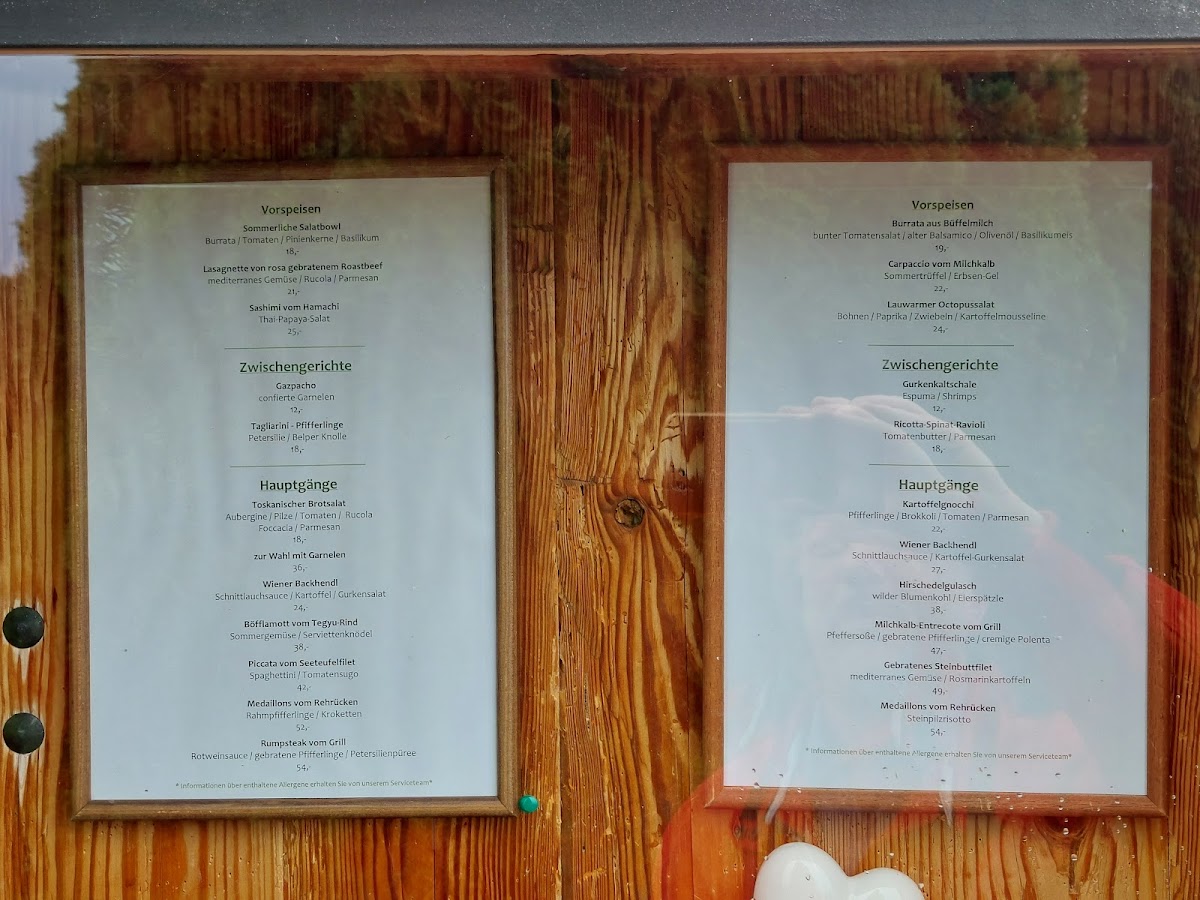 Vorspeisen
Sommerliche Salatbowl
Burrata / Tomaten / Pinienkerne / Basilikum
18,-
Lasagnette von rosa gebratenem Roastbeef
mediterranes Gemüse / Rucola / Parmesan
21,-
Sashimi vom Hamachi
Thai-Papaya-Salat
25,-
Zwischengerichte
Gazpacho
confierte Garnelen
12,-
Tagliarini - Pfifferlinge
Petersilie / Belper Knolle
18,-
Hauptgänge
Toskanischer Brotsalat
Aubergine / Pilze / Tomaten / Rucola
Foccacia / Parmesan
18,-
zur Wahl mit Garnelen
36,-
Wiener Backhendl
Schnittlauchsauce / Kartoffel / Gurkensalat
24,-
Böfflamott vom Tegyu-Rind
Sommergemüse / Serviettenknödel
38,-
Piccata vom Seeteufelfilet
Spaghettini / Tomatensugo
42,-
Medaillons vom Rehrücken
Rahmpfifferlinge / Kroketten
52,-
Rumpsteak vom Grill
Rotweinsauce / gebratene Pfifferlinge / Petersilienpüree
54,-
* Informationen über enthaltene Allergene erhalten Sie von unserem Serviceteam*
Vorspeisen
Burrata aus Büffelmilch
bunter Tomatensalat / alter Balsamico / Olivenöl / Basilikumeis
19,-
Carpaccio vom Milchkalb
Sommertrüffel / Erbsen-Gel
22,-
Lauwarmer Octopussalat
Bohnen / Paprika / Zwiebeln / Kartoffelmousseline
24,-
Zwischengerichte
Gurkenkaltschale
Espuma / Shrimps
12,-
Ricotta-Spinat-Ravioli
Tomatenbutter / Parmesan
18,-
Hauptgänge
Kartoffelgnocchi
Pfifferlinge / Brokkoli / Tomaten / Parmesan
22,-
Wiener Backhendl
Schnittlauchsauce / Kartoffel-Gurkensalat
27,-
Hirschedelgulasch
wilder Blumenkohl / Eierspätzle
38,-
Milchkalb-Entrecote vom Grill
Pfeffersoße / gebratene Pfifferlinge / cremige Polenta
47,-
Gebratenes Steinbuttfilet
mediterranes Gemüse / Rosmarinkartoffeln
49,-
Medaillons vom Rehrücken
Steinpilzrisotto
54,-
* Informationen über enthaltene Allergene erhalten Sie von unserem Serviceteam*